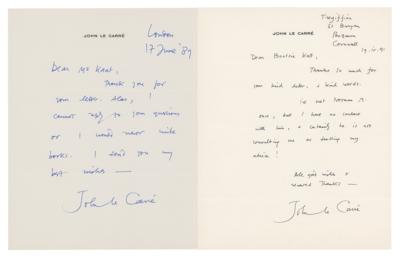 JOHN LE CARRÉ
London
17 June '89
Dear Mr Kaat,
Thank you for
your letter. Alas, I
cannot reply to your questions
or I would never write
books. I send you my
best wishes —
John le Carré
JOHN LE CARRÉ
Tregiffian
St Buryan
Penzance
Cornwall
Dear Kaat,
Thanks so much for
your kind letter, & kind words.
is not
one, but I have no contact
with him, & certainly he is not
consulting me or seeking my
advice!
All good wishes &
renewed thanks —
John le Carré